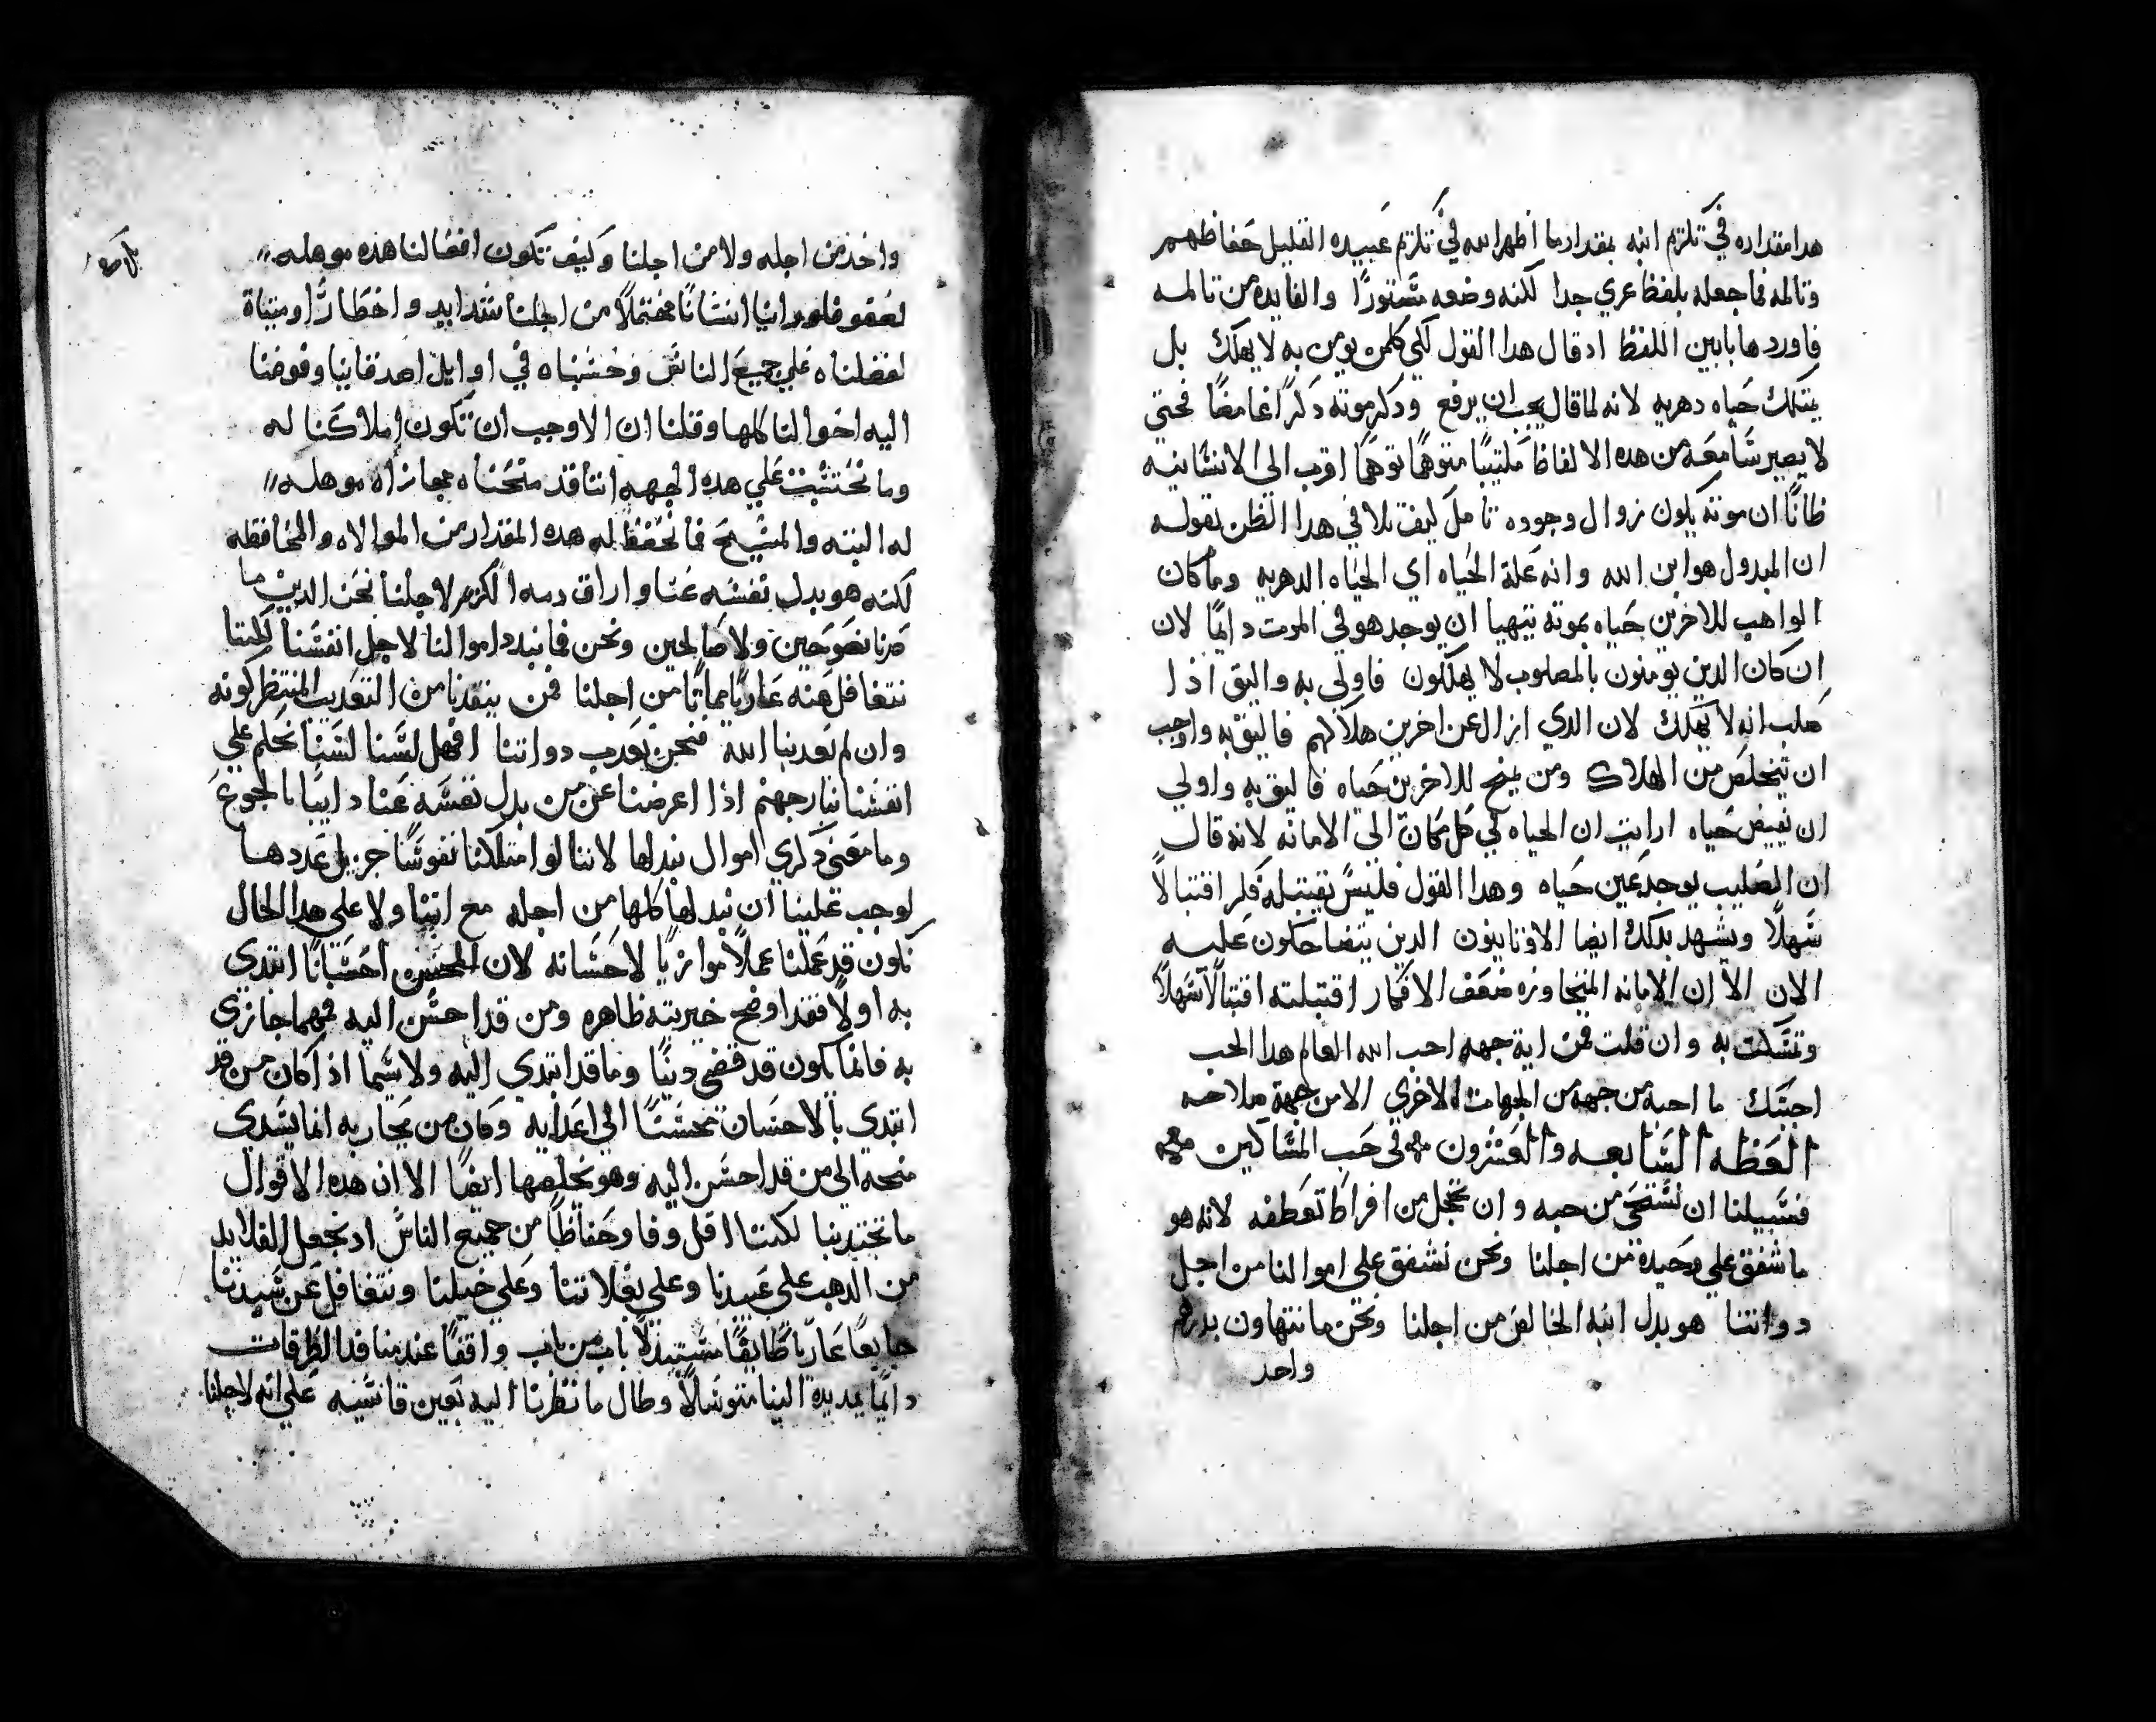 هدا مقداره في تكرم ابنه بمقدار ما اظهر الله في تكرم عبيده القليل حفاظهم
وتالمه فما جعله بلفظ عري جدا لكنه وضعه مستورًا والفايده من تالمه
فاوردها بابين اللفظ اد قال هدا القول لكي كلمن يومن به لا يهلك بل
يمتلك حياه دهريه لانه لما قال يجب ان يرفع ودكر موته دكرًا غامضًا فحتي
لا يصير سامعه من هده الالفاظ مكتيبًا متوهمًا توهمًا اقرب الى الانسانيه
ظانًا ان موته يكون زوال وجوده تامل كيف تلافي هدا الظن بقوله
ان المبدول هو ابن الله وانه علة الحياه اي الحياه الدهريه وما كان
الواهب للاخرين حياه بموته يتهيا ان يوجد هو في الموت دايمًا لان
ان كان الدين يومنون بالمصلوب لا يهلكون فاولي به واليق ادا
صلب انه لا يهلك لان الدي ازال عن اخرين هلاكهم فاليق به واوجب
ان يتخلص من الهلاك ومن يمنح للاخرين حياه فاليق به واولي
ان يفيض حياه ارايت ان الحياه في كل مكان الى الامانه لانه قال
ان الصليب يوجد عين حياه وهدا القول فليس يقتبله فكر اقتبالًا
سهلًا ويشهد بدلك ايضا الاوتانيون الدين يتضاحكون عليه
الان الا ان الامانه المتجاوزه ضعف الافكار اقتبلته اقتبالًا سهلًا
وتمسكت به وان قلت فمن اية جهه احب الله العالم هدا الحب
اجبتك ما احبه من جهه من الجهات الاخري الا من جهة صلاحه
العظه السابعه والعشرون في حب المساكين
فسبيلنا ان نستحي من حبه وان نخجل من افراط تعطفه لانه هو
ما شفق علي وحيده من اجلنا ونحن نشفق علي اموالنا من اجل
دواتنا هو بدل ابنه الخالص من اجلنا ونحن ما نتهاون بدرهم
واحد
واحد من اجله ولا من اجلنا وكيف تكون افضالنا هده موهله
لعفو فلو راينا انسانًا محتملًا من اجلنا شدايد واخطارًا ومتباة
لفضلناه علي جميع الناس وحسبناه في اوايل اصدقاينا وفوضنا
اليه احوالنا كلها وقلنا ان الاوجب ان تكون املاكنا له
وما نحتسب علي هده الجهه اننا قد منحناه مجازاه موهله
له البته والمسيح فما نحفظ له هده المقدار من الموالاه والمحافظه
لكنه هو بدل نفسه عنا واراق دمه الكريم لاجلنا نحن الدين ما
صرنا نصوحين ولا صالحين ونحن فما نبدد اموالنا لاجل انفسنا لكننا
نتغافل عنه عاريًا مماتًا من اجلنا فمن ينقدنا من التعديب المنتظر كونه
وان لم يعدبنا الله فنحن نعدب دواتنا افهل لسنا لسنا نحكم علي
انفسنا بنار جهنم اذا اعرضنا عن من بدل نفسه عنا دايبًا بالجوع
وما معني دكري اموال نبدلها لاننا لو امتلكنا نفوسًا جزيل عددها
لوجب علينا ان نبدلها كلها من اجله مع اننا ولا على هدا الحال
نكون قد عملنا عملًا موازيًا لاحسانه لان المحسن احسانًا ابتدي
به اولًا فقد اوضح خيريته ظاهره ومن قد احسن اليه فمهما جازي
به فانما يكون قد قضي دينًا وما قد ابتدي اليه ولا سيما اذا كان من قد
ابتدى بالاحسان محسنًا الي اعدايه وكان من يجازيه انما يسدي
منحه الى من قد احسن اليه وهو يخلصها ايضًا الا ان هده الاقوال
ما تجتدبنا لكننا اقل وفا وحفاظًا من جميع الناس اد نجعل القلايد
من الدهب على عبيدنا وعلي بغلاتنا وعلي خيلنا ونتغافل عن سيدنا
جايعًا عاريًا طايفًا مستبدلًا باب من باب واقفًا عند منافد الطرقات
دايمًا يمد يده الينا متوسلًا وطال ما نظرنا اليه بعين قاسيه علي انه لاجلنا